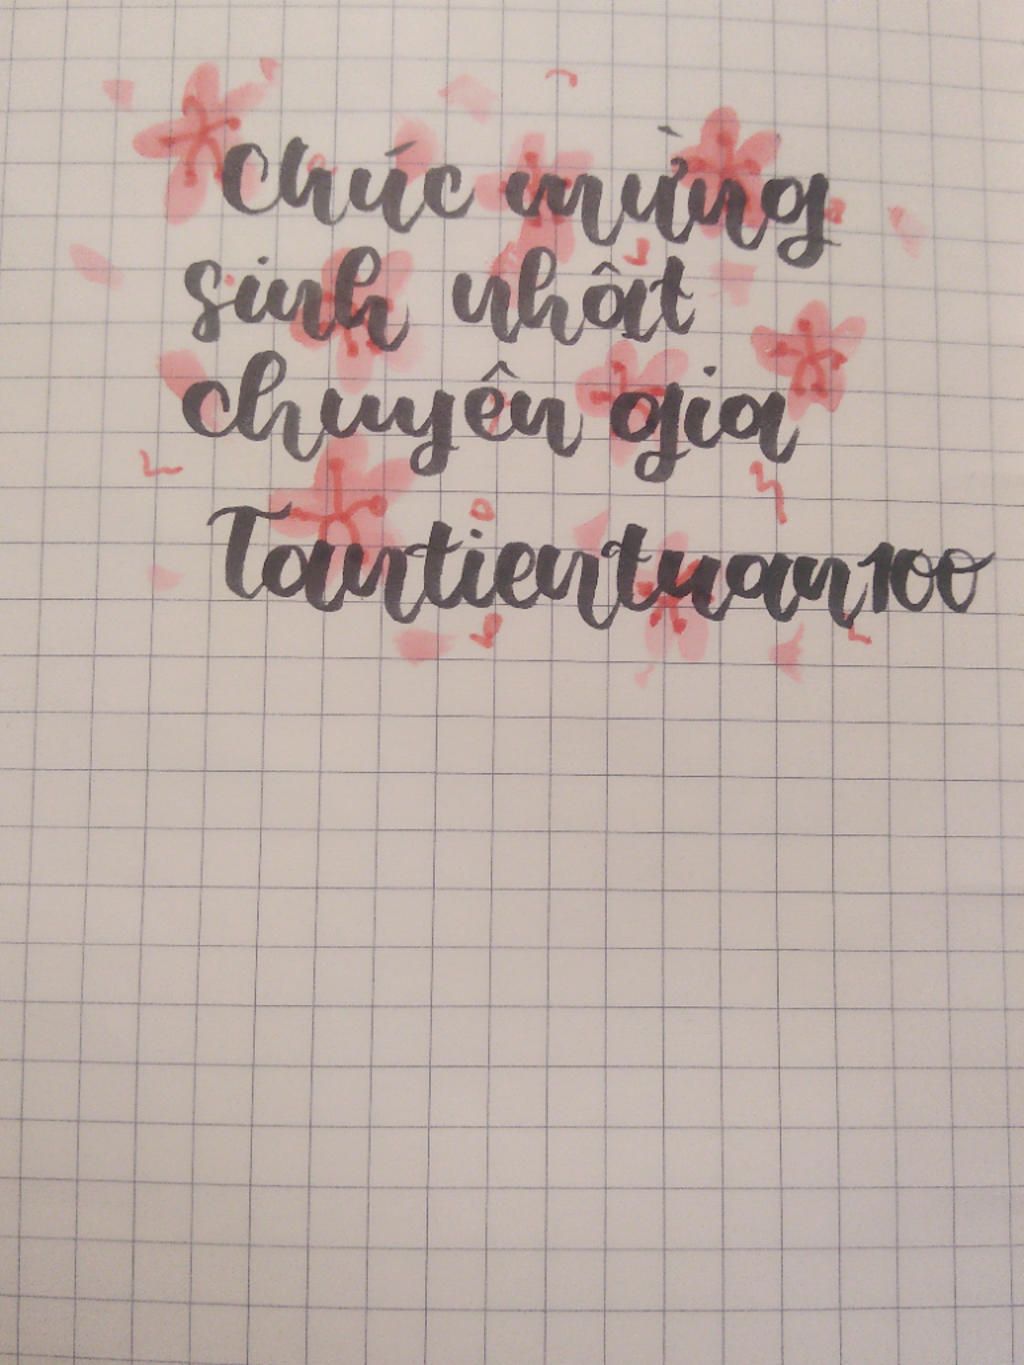 Chúc mừng
sinh nhật
chuyên gia
Tantientuan100